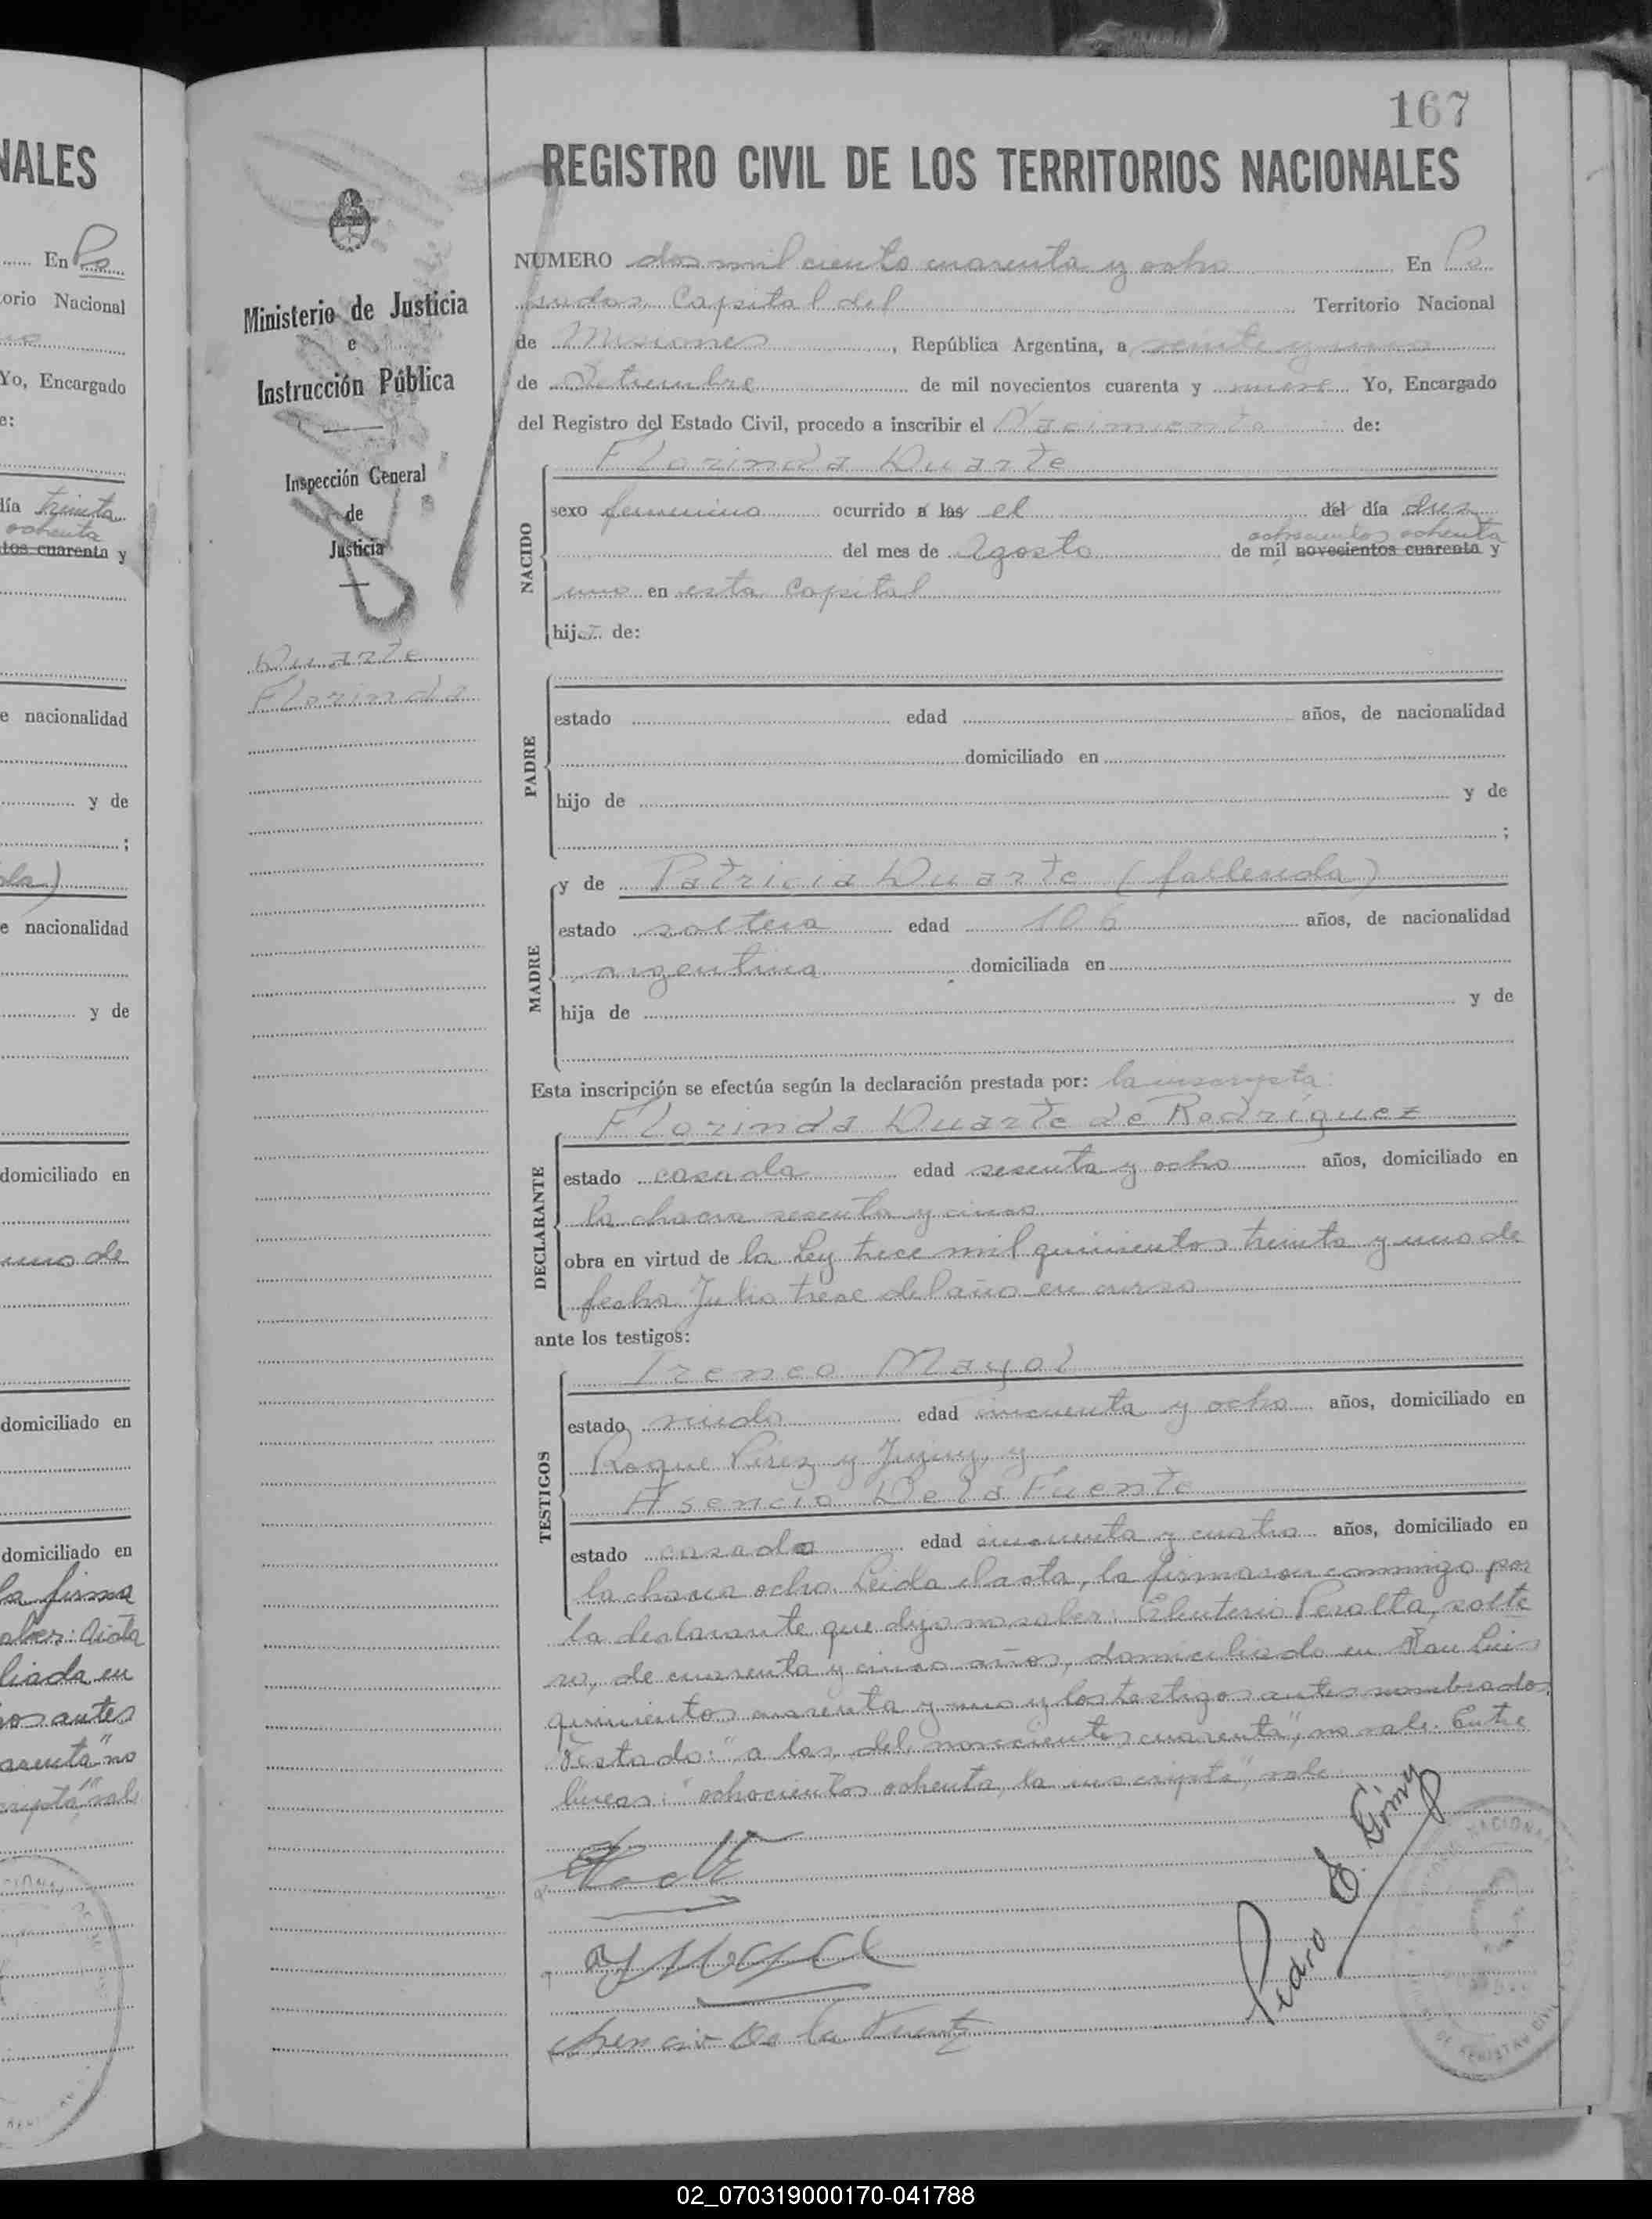 NALES
En Po
orio Nacional
Yo, Encargado
e:
día treinta
ochenta
tos cuarenta y
e nacionalidad
y de
;
da)
e nacionalidad
y de
domiciliado en
uno de
domiciliado en
domiciliado en
la firma
aber:
liada en
os antes
arenta" no
cripta" vale
167
REGISTRO CIVIL DE LOS TERRITORIOS NACIONALES
Ministerio de Justicia
e
Instrucción Pública
Inspección General
de
Justicia
Duarte
Florinda
NUMERO dos mil ciento cuarenta y ocho En Po
sadas Capital del Territorio Nacional
de Misiones, República Argentina, a veinte y uno
de Setiembre de mil novecientos cuarenta y nueve Yo, Encargado
del Registro del Estado Civil, procedo a inscribir el Nacimiento de:
Florinda Duarte
NACIDO
sexo femenino ocurrido a las el del día diez
ochocientos ochenta
del mes de Agosto de mil novecientos cuarenta y
uno en esta Capital
hija de:
PADRE
estado edad años, de nacionalidad
domiciliado en
hijo de y de
;
MADRE
y de Patricia Duarte (fallecida)
estado soltera edad 106 años, de nacionalidad
argentina domiciliada en
hija de y de
Esta inscripción se efectúa según la declaración prestada por: la inscripta
Florinda Duarte de Rodríguez
DECLARANTE
estado casada edad sesenta y ocho años, domiciliado en
la chacra sesenta y cinco
obra en virtud de la Ley trece mil quinientos treinta y uno de
fecha Julio trece del año en curso
ante los testigos:
Ireneo Mayol
TESTIGOS
estado viudo edad cincuenta y ocho años, domiciliado en
Roque Pérez y Jujuy, y
Asencio De la Fuente
estado casado edad cincuenta y cuatro años, domiciliado en
la chacra ocho. Leida el acta, la firmaron conmigo por
la declarante que dijo no saber: Eleuterio Peralta, solte
ro, de cuarenta y cinco años, domiciliado en San Luis
quinientos cuarenta y uno y los testigos antes nombrados.
Testado: "a las, del, novecientos cuarenta", no vale. Entre
lineas: "ochocientos ochenta, la inscripta", vale
Asencio De la Fuente
Pedro E.
02_070319000170-041788